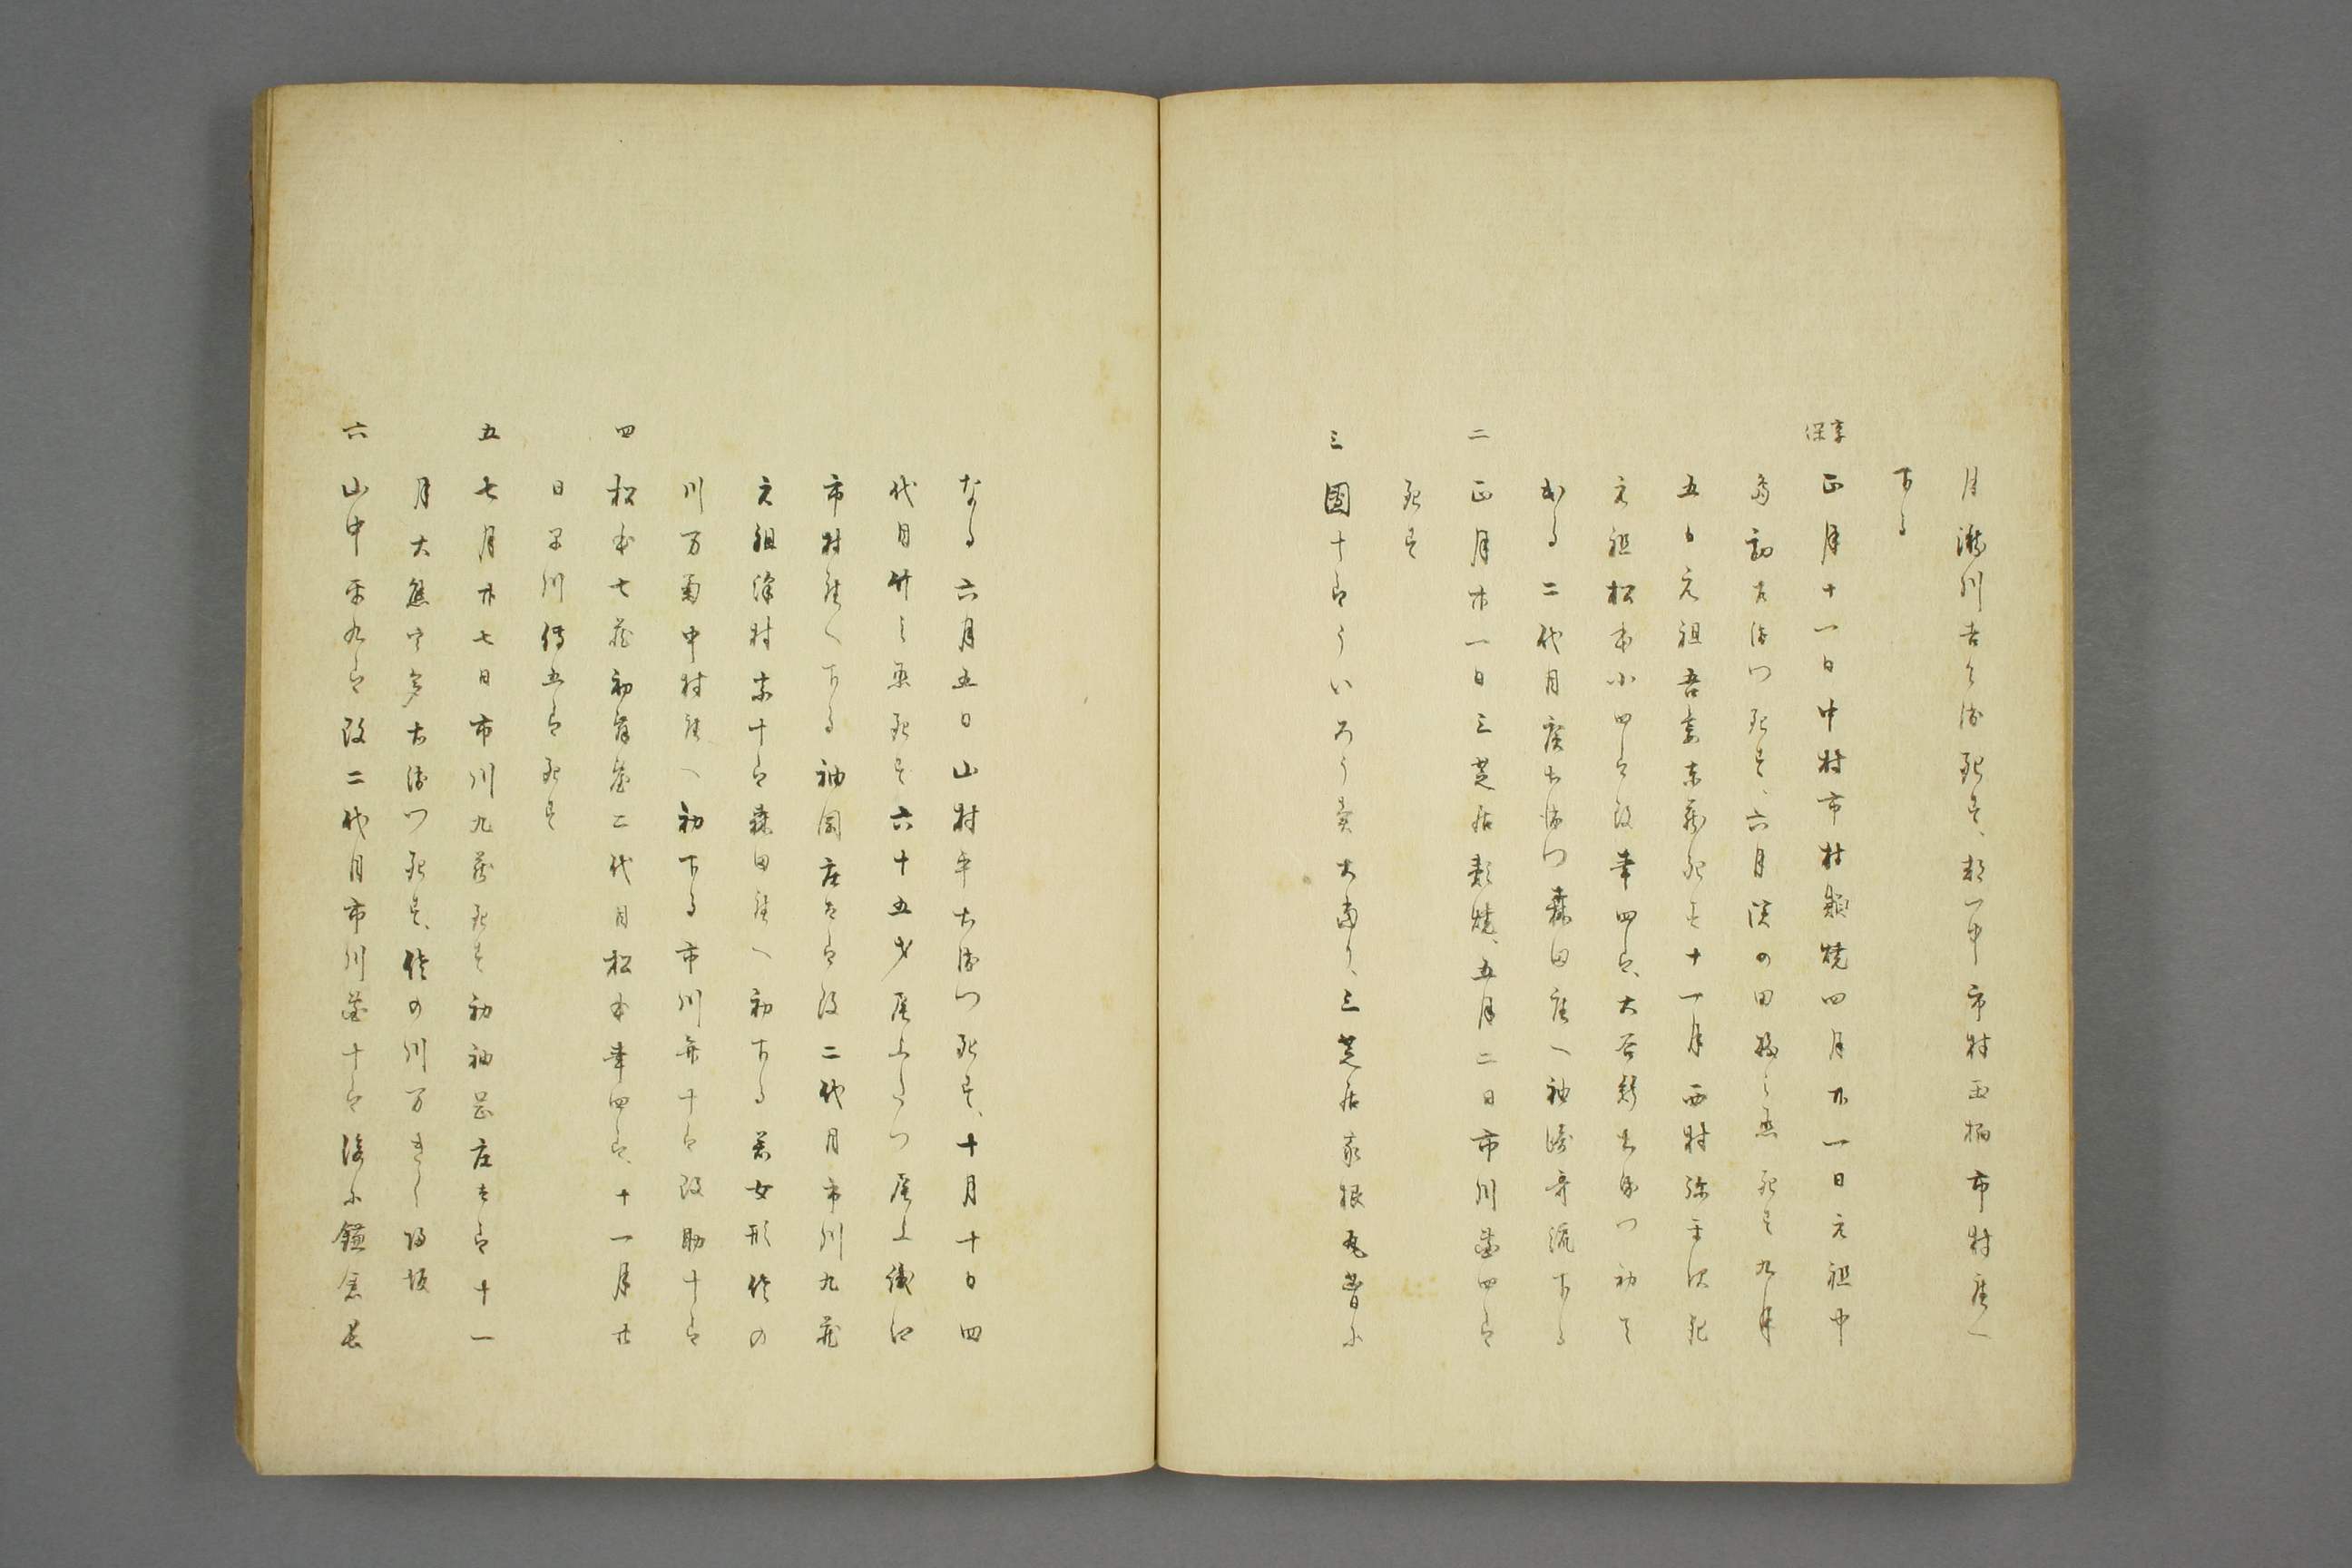 月瀧川吉兵衛死す、都一中市村玉柏市村座へ
下る
享保 正月十一日中村市村類焼四月廿一日元祖中
島勘左衛門死す、六月渓の田桜之丞死す九月
五日元祖吾妻東蔵死す十一月西村弥平次死
元祖松本小四郎改幸四郎、大谷新左衛門初て
出る二代目広右衛門森田座へ袖崎哥流下る
二 正月廿一日三芝居類焼、五月二日市川団四郎
死す
三 団十郎ういろう売大当り、三芝居家根瓦葺に
なる六月五日山村平右衛門死す、十月十日四
代目竹之丞死す六十五才尾上人尾上織江
市村座へ下る袖岡庄太郎改二代目市川九蔵
元祖沢村宗十郎森田座へ初下る若女形佐の
川万菊中村座へ初下る市川弁十郎改助十郎
四 松本七蔵初舞台二代目松本幸四郎、十一月廿
日早川伝五郎死す
五 七月廿七日市川九蔵死す初袖岡庄太郎十一
月大熊宇多右衛門死す、佐の川万きく帰坂
六 山中平九郎改二代目市川団十郎後に鎌倉長